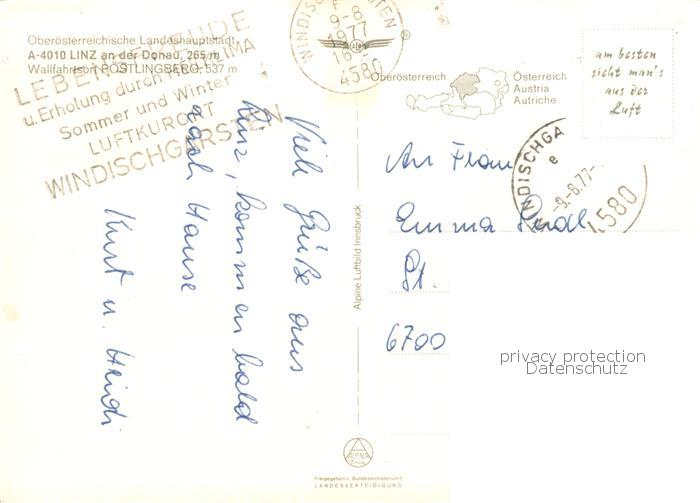 Oberösterreichische Landeshauptstadt
A-4010 LINZ an der Donau, 265 m
Wallfahrtsort PÖSTLINGBERG, 537 m
LEBENSFREUDE
u. Erholung durch KLIMA
Sommer und Winter
LUFTKURORT
WINDISCHGARSTEN
WINDISCHGARSTEN
9-8
1977
4580
®
Oberösterreich
Österreich
Austria
Autriche
am besten
sieht man's
aus der
Luft
WINDISCHGA
e
-9.-8.77-
4580
Viele Grüße aus
Linz, kommen bald
nach Hause
Kurt u. Heidi
Alpine Luftbild Innsbruck
An Frau
Emma
St.
6700
privacy protection
Datenschutz
ALPINE
Freigegeben v. Bundesministerium f.
LANDESVERTEIDIGUNG